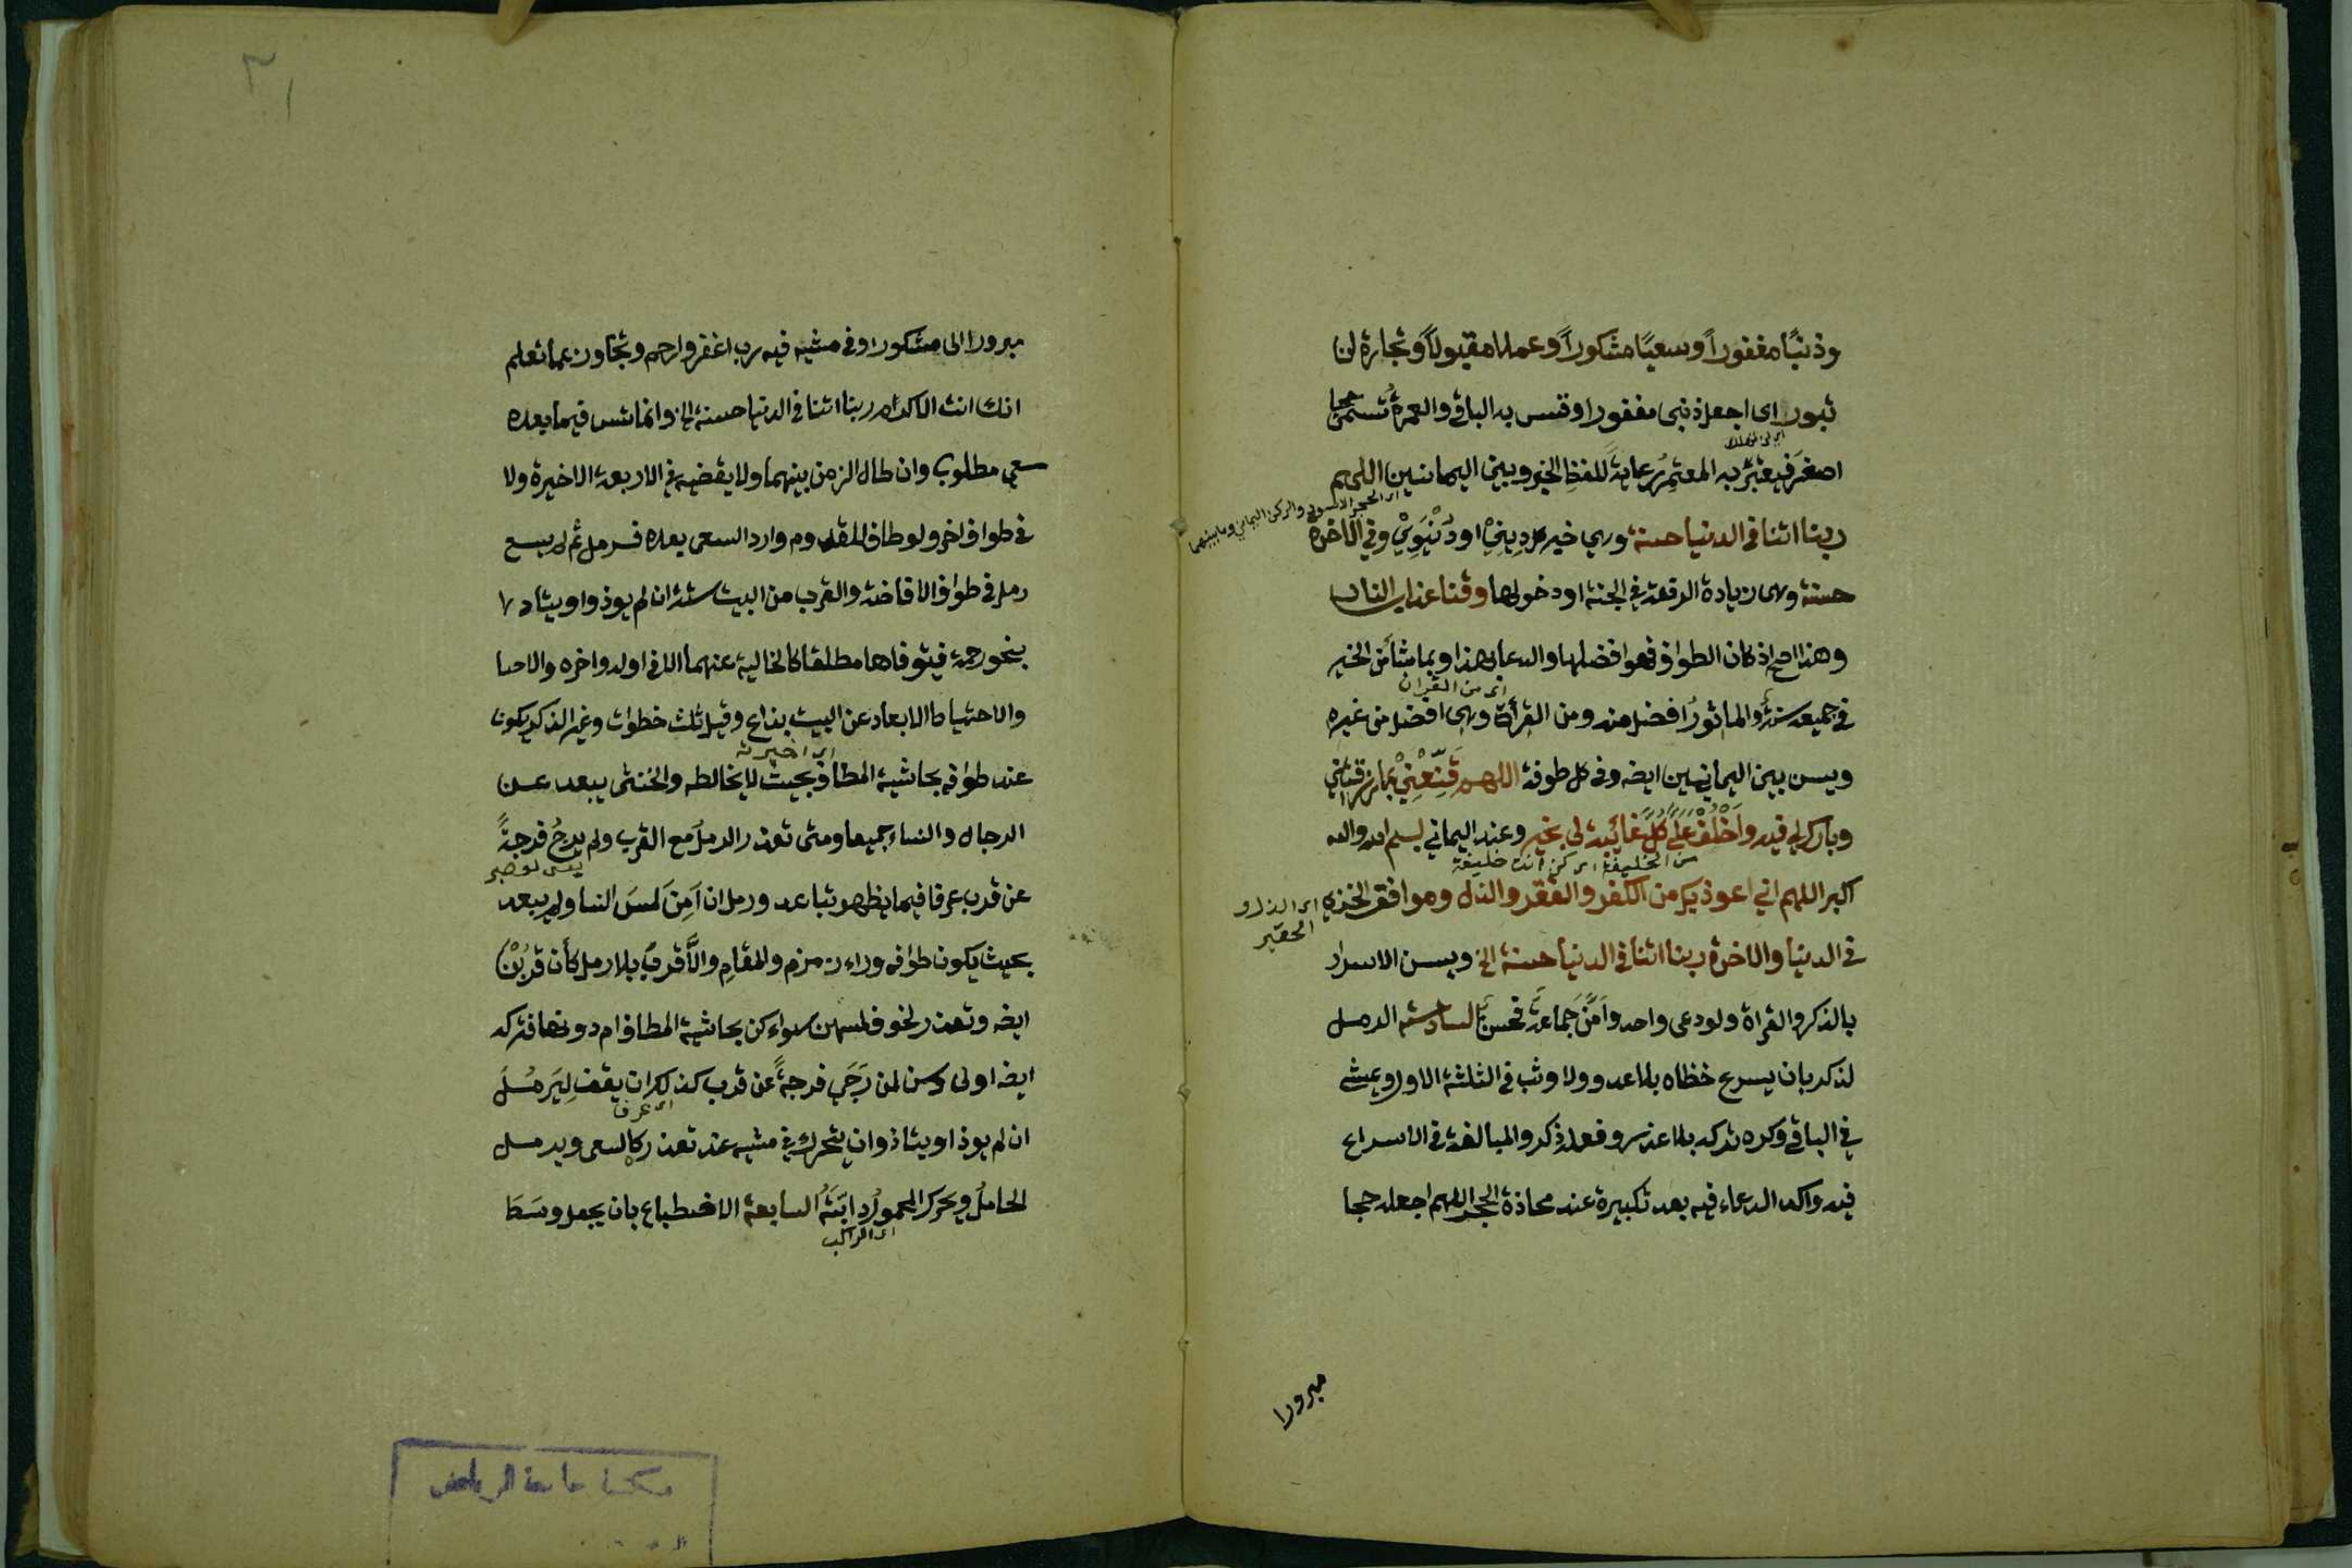 وذنبًا مغفوراً وسعيًا مشكوراً وعملا مقبولاً وتجارة لن
تبور اى اجعل ذنبى مغفورا وقس به الباقي والعمرة تسمى حجا
اصغر فيعتبر به المعتمر رعاية للفظ الخبر وبين اليمانيين اللهم
اى الحجر الاسود والركن اليماني وما بينهما
ربنا اتنا في الدنيا حسنة وهي خير كل ديني او دنيوي وفي الاخرة
حسنة وهى زيادة الرفعة في الجنة او دخولها وقنا عذاب النار
وهذا اصح اذكار الطواف فهو افضلها والدعا بهذا وبما شأ من الخير
اى من القران
في جميعه سنة والماثور افضل منه ومن القرأة وهى افضل من غيره
ويسن بين اليمانيين ايضه وفى كل طوفة اللهم قنّعني بما رزقتني
وبارك لي فيه واخلف على كل غائبة لى بخير وعند اليماني بسم الله والله
من الخليفة اى كن انت خليفة
اكبر اللهم اني اعوذ بك من الكفر والفقر والذل وموافق الخزي
اى الذل و
الحقير
في الدنيا والاخرة ربنا اتنا في الدنيا حسنة الخ ويسن الاسرار
بالذكر والقراة ولو دعى واحد وأمّن جماعة فحسن السادسة الرمل
لذكر بان يسرع خطاه بلا عدو ولا وثب في الثلثة الاول ويمشي
في الباقي وكره تركه بلا عذر وفعله ذكر والمبالغة في الاسراع
فيه واكد الدعاء فيه بعد تكبيرة عند محاذة الحجر اللهم اجعله حجا
مبرورا
٣١
مبرورا الى مشكورا وفى مشيه فيه رب اغفر وارحم وتجاوز عما تعلم
انك انت الاكرم ربنا اتنا في الدنيا حسنة الخ وانما تسن فيما بعده
سعي مطلوب وان طال الزمن بينهما ولا يقضيه في الاربعة الاخيرة ولا
في طواف اخر ولو طاف للقدوم واراد السعى بعده فرمل ثم لم يسع
رمل في طواف الافاضة والقرب من البيت سنة ان لم يوذ او يتاد
بنحو زحمة فيتوقاها مطلقا كالخالية عنهما الا في اوله واخره والاحيا
والاحتياط الابعاد عن البيت بذراع وقيل ثلث خطوات وغير الذكر يكون
عند طوافه بحاشية المطاف بحيث لا يخالطه والخنثى يبعد عن
الرجال والنساء جميعا ومتى تعذر الرمل مع القرب ولم يرج فرجةً
عن قرب عرفا فيما يظهر تباعد ورمل ان أمن لمس النسا ولم يبعد
بحيث يكون طوافه وراء زمزم والمقام والا قرب بلا رمل كأن قربن
ايضه وتعذر لخوف لمسهن سواء كن بحاشية المطاف ام دونها فتركه
ايضه اولى وسن لمن رجي فرجةً عن قرب كذلك ان يقف ليرمل
اى عرفا
ان لم يوذ او يتاذ وان يتحرك في مشيه عند تعذر كالسعى ويرمل
الحامل ويحرك المحمول دابّته السابعة الاضطباع بان يجعل وسط
اى الراكب
مكتبة جامعة الرياض